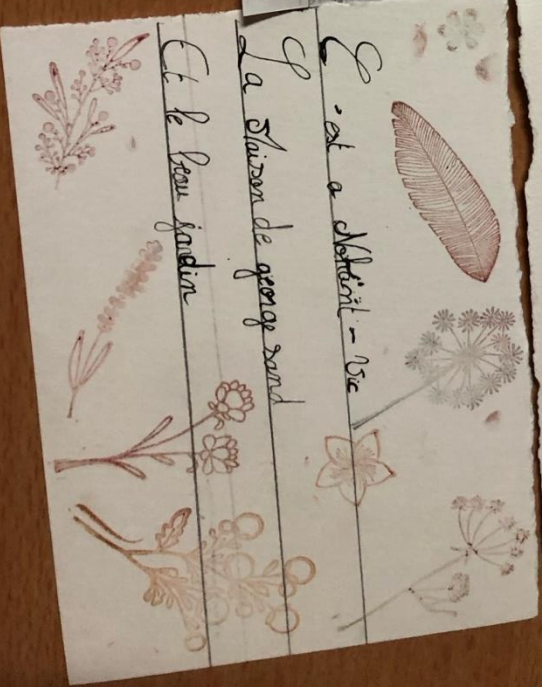 C'est a Nohant-Vic
La Maison de george sand
Et le beau jardin